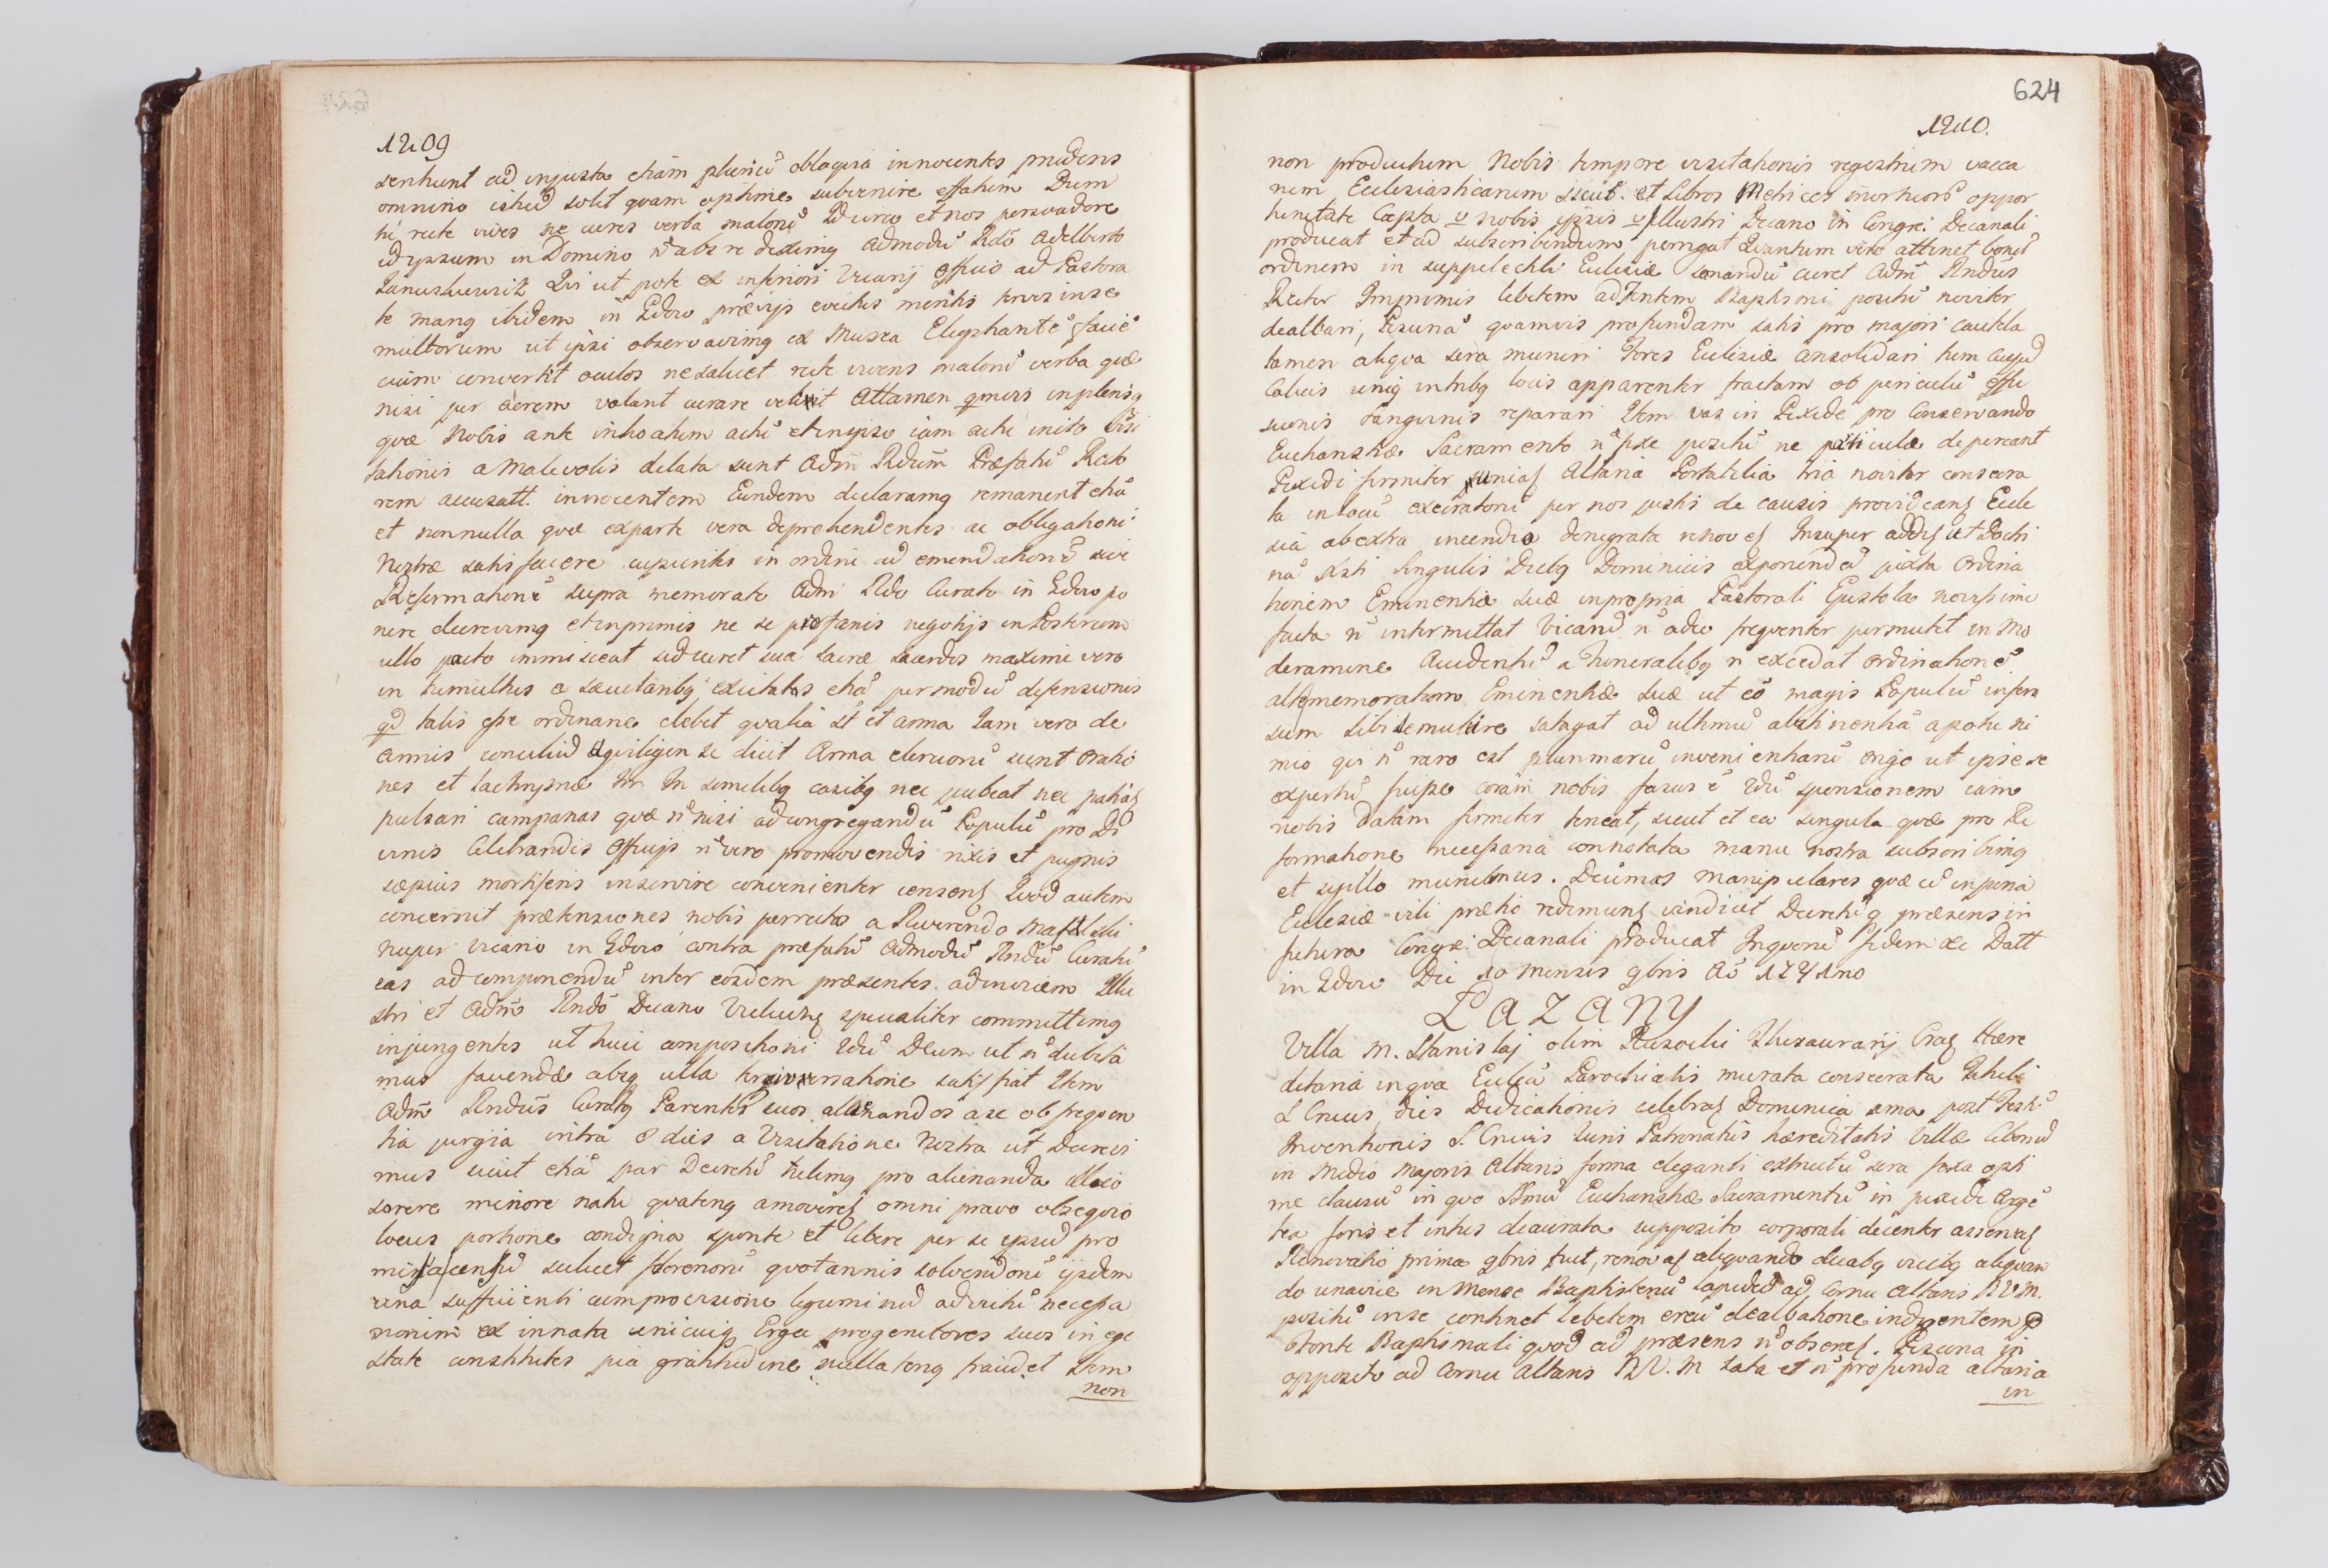 1209
sentiunt ad injusta etiam plurimū obloquia innocentes prudens
omnino istud solet quam optime subvenire effatum Dum
recte vives ne cures verba malorū Idcirco et nos persvadere
id ipsum in Domino nō abs re duximg Admodū Rdō Adelberto
Qui ut pote ex inferiori Vicarij Officio ad Pastora
le mang ibidem in Zdow prævijs
multorum ut ipsi observavimg ex Musca Elephantē facie
cum convertit oculos ne scilicet recte vivens malorū verba quæ
nisi per aerem volant curare velit Attamen qmvis in plerisq
quæ Nobis ante inchoatum actū et in ipso iam actu
tationis a Malevolis delata sunt Adm̄ Rdum̄ Præfatū Recto
rem accusatt. innocentem Eundem declaramg remanent etiā
et nonnulla quæ ex parte vera deprehendentes ac obligationi
Nostræ satisfacere cupientes in ordine ad emendationē sive
Reformationē supra memorato Adm̄ Rdo Curato in Zdow po
nere decrevimg et inprimis ne se profanis negotijs in Posterum
ullo pacto immisceat sed curet sua sacra sacerdos maxime vero
in tumultus a sæcularibg excitatos etiā per modū defensionis
qd talis esse ordinarie debet qualia st et arma Iam vero de
Armis conciliū dicit Arma clericorū sunt oratio
nes et lachrymæ In similibg casibg nec jubeat nec patiat
pulsari campanas quæ nō nisi ad congregandū Populū pro Di
vinis Celebrandis Officijs nō vero promovendis rixis et pugnis
sæpius mortiferis inservire convenienter censens Quod autem
concernit prætensiones nobis porrectas a Reverendo
nuper Vicario in Zdow contra præfatū Admodū Rndū Curatū
eas ad componendū inter eosdem præsentes ad invicem Illu
stri et Adm̄ Rndō Decano specialiter committimg
injungentes ut huic compositioni Idū Deum ut nō dubita
mus favende absq ulla tergiversatione satisfiat Item
Adm̄ Rndūs Curatg Parentes suos alienandos a se ob frequen
tia jurgia intra 8 dies a Visitatione Nostra ut Decrevi
mus uti etiā par Decretū tulimg pro alienanda
sorore minore natu quateng amoveret omni pravo obsequio
locus portione condigna sponte et libere per se ipsū pro
scilicet florenorū quotannis solvendorū ijsdem
una sufficienti cum provisione leguminū ad victū necessa
riorum ex innata unicuiq Erga progenitores suos in ege
state constitutos pia gratitudine nullateng fraudet Item
non
624
1210.
non productum Nobis tempore visitationis registrum vacca
rum Ecclesiasticarum sicut et Libros Metrices mortuorū oppor
tunitate Capta v nobis ipsis v Illustri Decano in Congre: Decanali
producat et ad subscribendum porrigat Quantum vero attinet bonū
ordinem in suppellectili Ecclesiæ servandū curet Adm̄ Rndūs
Rector Imprimis lebetem ad Fontem Baptismi positū noviter
dealbari, Piscinā quamvis profundam satis pro majori cautela
tamen aliqua sera muniri Fores Ecclesiæ consolidari tum
Calicis unig in tribg locis apparenter fractam ob periculū effu
sionis Sanguinis reparari Item vas in Pixide pro Conservando
Eucharistiæ Sacramento nō fixe positū ne particulæ depereant
Pixidi firmiter Altaria Portatilia tria noviter consecra
ta in locū execratorū per nos justis de causis provideant Eccle
sia ab extra incendio denigrata renovet Insuper addit ut Doctri
nā Xsti singulis Diebg Dominicis exponendā juxta ordina
tionem Eminentiæ suæ in propria Pastorali Epistola novissime
facta nō intermittat Vicariū nō adeo frequenter permutet in mo
deramine Accidentiū a Funeralibg nō excedat ordinationē
altememoratam Eminentiæ suæ ut eō magis Populū infen
sum sibi satagat ad ultimū abstinentiā a potu ni
mio qui nō raro est plurimarū inconvenientiarū origo ut ipse se
expertū fuisse coram nobis fasus ē Idū sponsionem iam
nobis datam firmiter teneat, sicut et ea singula quæ pro Re
formatione necessaria connotata manu nostra subscribimg
et sigillo munimus. Decimas manipulares quæ cū injuria
Ecclesiæ vili prætio redimuns vindicet Decretūq præsens in
futura Congre: Decanali producat In quorū fidem &c Datt
in Zdow Die 10 mensis 9bris Aō 1741mo
ŁAZANY
Villa M. Stanislaj olim Thesaurarij Crac Hære
ditaria in qua Ecclia Parochialis murata consecrata Tituli
S Crucis, dies Dedicationis celebrat Dominica 2ma post Festū
Inventionis S. Crucis Iuris Patronatūs hæreditatis Villæ Ciboriū
in Medio Majoris Altaris forma eleganti extructū sera fixa opti
me clausū in quo SSmū Eucharistiæ Sacramentū in pixide Argē
tea foris et intus deaurata supposito corporali decenter asservat
Renovatio prima 9bris fuit, renovat aliquando duabg vicibg aliquan
do unavice in Mense Baptisteriū lapideū ad Cornu Altaris BVM.
positū in se continet lebetem ereū dealbatione indigentem
Fonte Baptismali quod ad præsens nō obserat. Piscina in
opposito ad cornu Altaris B.V.M lata et nō profunda altaria
in